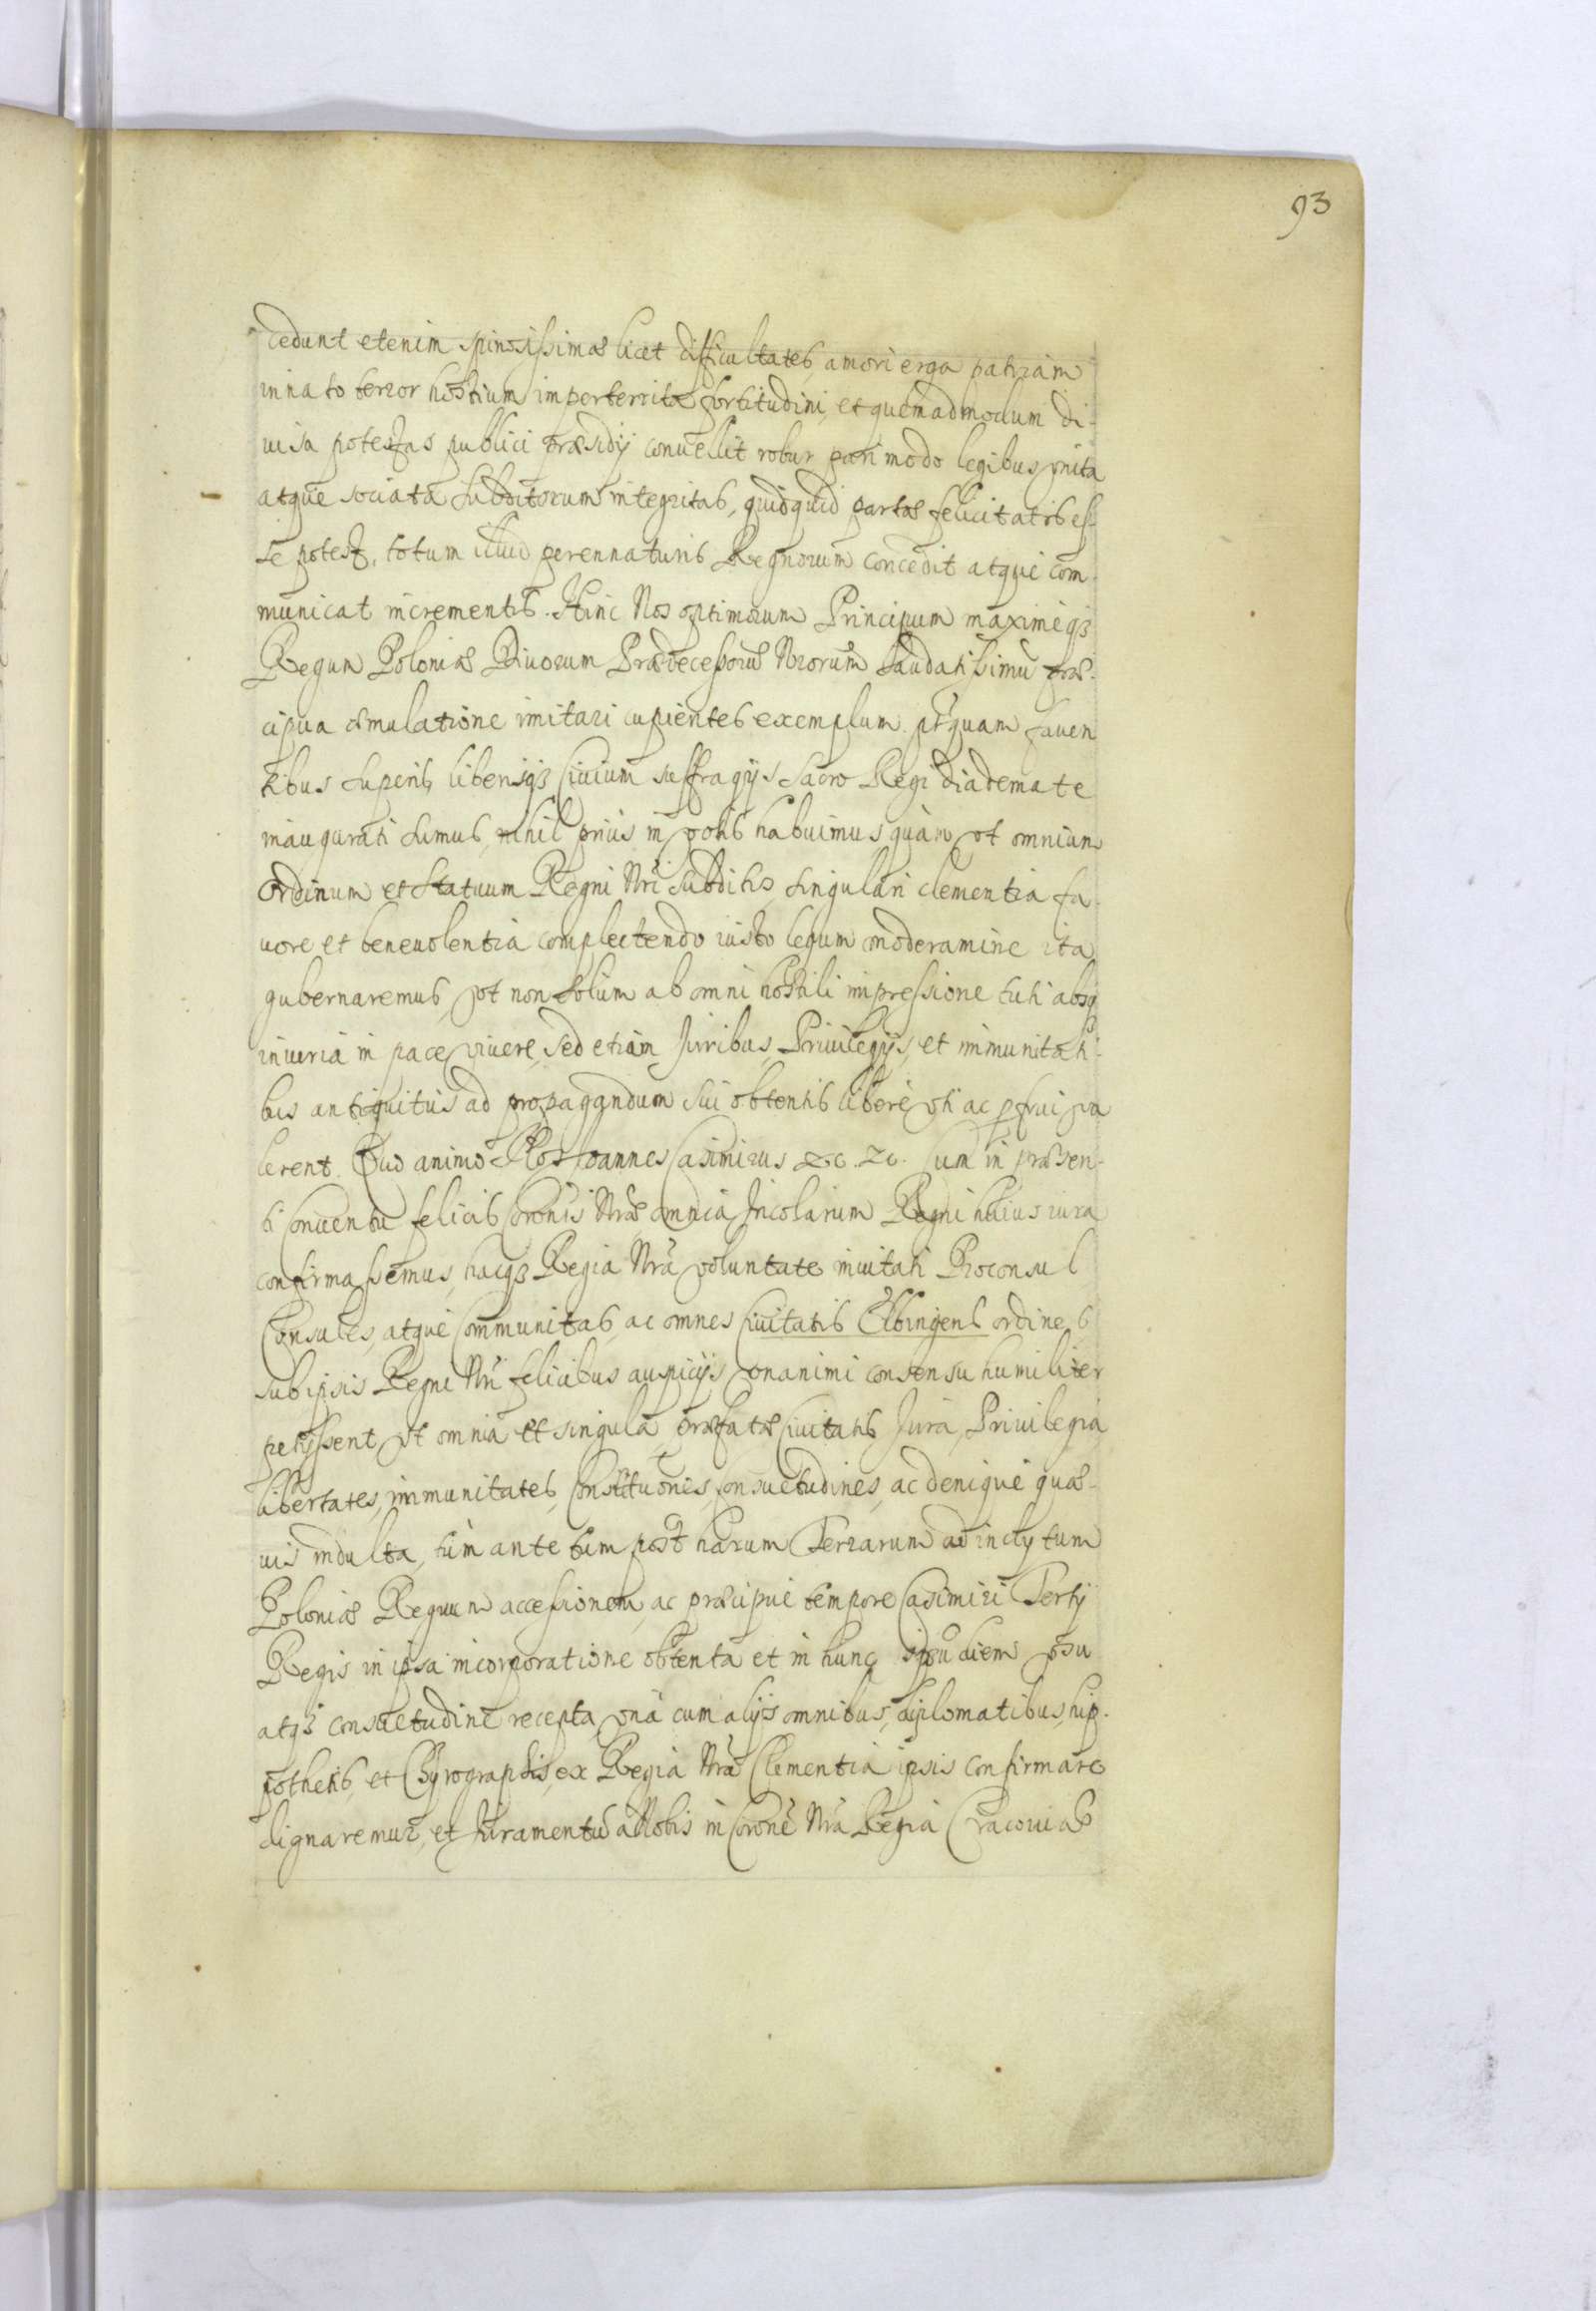 93
cedunt etenim spinosissimæ licet difficultates, amori erga patriam
innato terror hostium imperterritæ fortitudini, et quemadmodum di-
uisa potestas publici præsidij conuellit robur pari modo legibus vnita
atque sociata subditorum integritas, quidquid partæ felicitatis es-
se potest, totum illud perennaturis Regnorum concedit atque com-
municat incrementis. Hinc Nos optimorum Principum maximeq3
Regum Poloniæ Diuorum Prædecessorũ Nrorum laudatissimũ præ-
cipua æmulatione imitari cupientes exemplum. ptquam fauen
tibus superis, liberisq3 Ciuium suffragijs Sacro Regi diademate
inaugurati sumus, nihil prius in votis habuimus quàm vt omnium
Ordinum et Statuum Regni Nri subditos singulari clementia fa-
uore et beneuolentia complectendo iusto legum moderamine ita
gubernaremus, vt non solùm ab omni hostili impressione tuti absq3
iniuria in pace viuere, sed etiam Iuribus, Priuilegijs, et immunitati-
bus antiquitus ad propagandum sui obtentis liberè vti ac pfrui va
lerent. Quo animo Nos Ioannes Casimirus &c. &c. Cum in præsen-
ti Conuentu felicis Coronis Nræ omnia Incolarum Regni huius iura
confirmassemus, hacq3 Regia Nrã voluntate inuitati Proconsul
Consules, atque Communitas, ac omnes Ciuitatis Elbingens ordines
sub ipsis Regni Nri felicibus auspicijs vnanimi consensu humiliter
petijssent, vt omnia et singula præfatæ Ciuitatis Jura, Priuilegia
libertates, immunitates, Constituones, consuetudines, ac denique quæ-
uis indulta, tùm ante tum post harum Terrarum ad inclytum
Poloniæ Regnum accessionem, ac præcipue tempore Casimiri Tertij
Regis in ipsa incorporatione obtenta et in hunc vsu
atq3 consuetudine recepta, vnà cum alijs omnibus, diplomatibus, hip-
pothetis, et Chyrographis, ex Regia Nrã Clementia ipsis confirmare
dignaremur, et Juramentũ a Nobis in Coronẽ Nrã Regia Cracouiæ